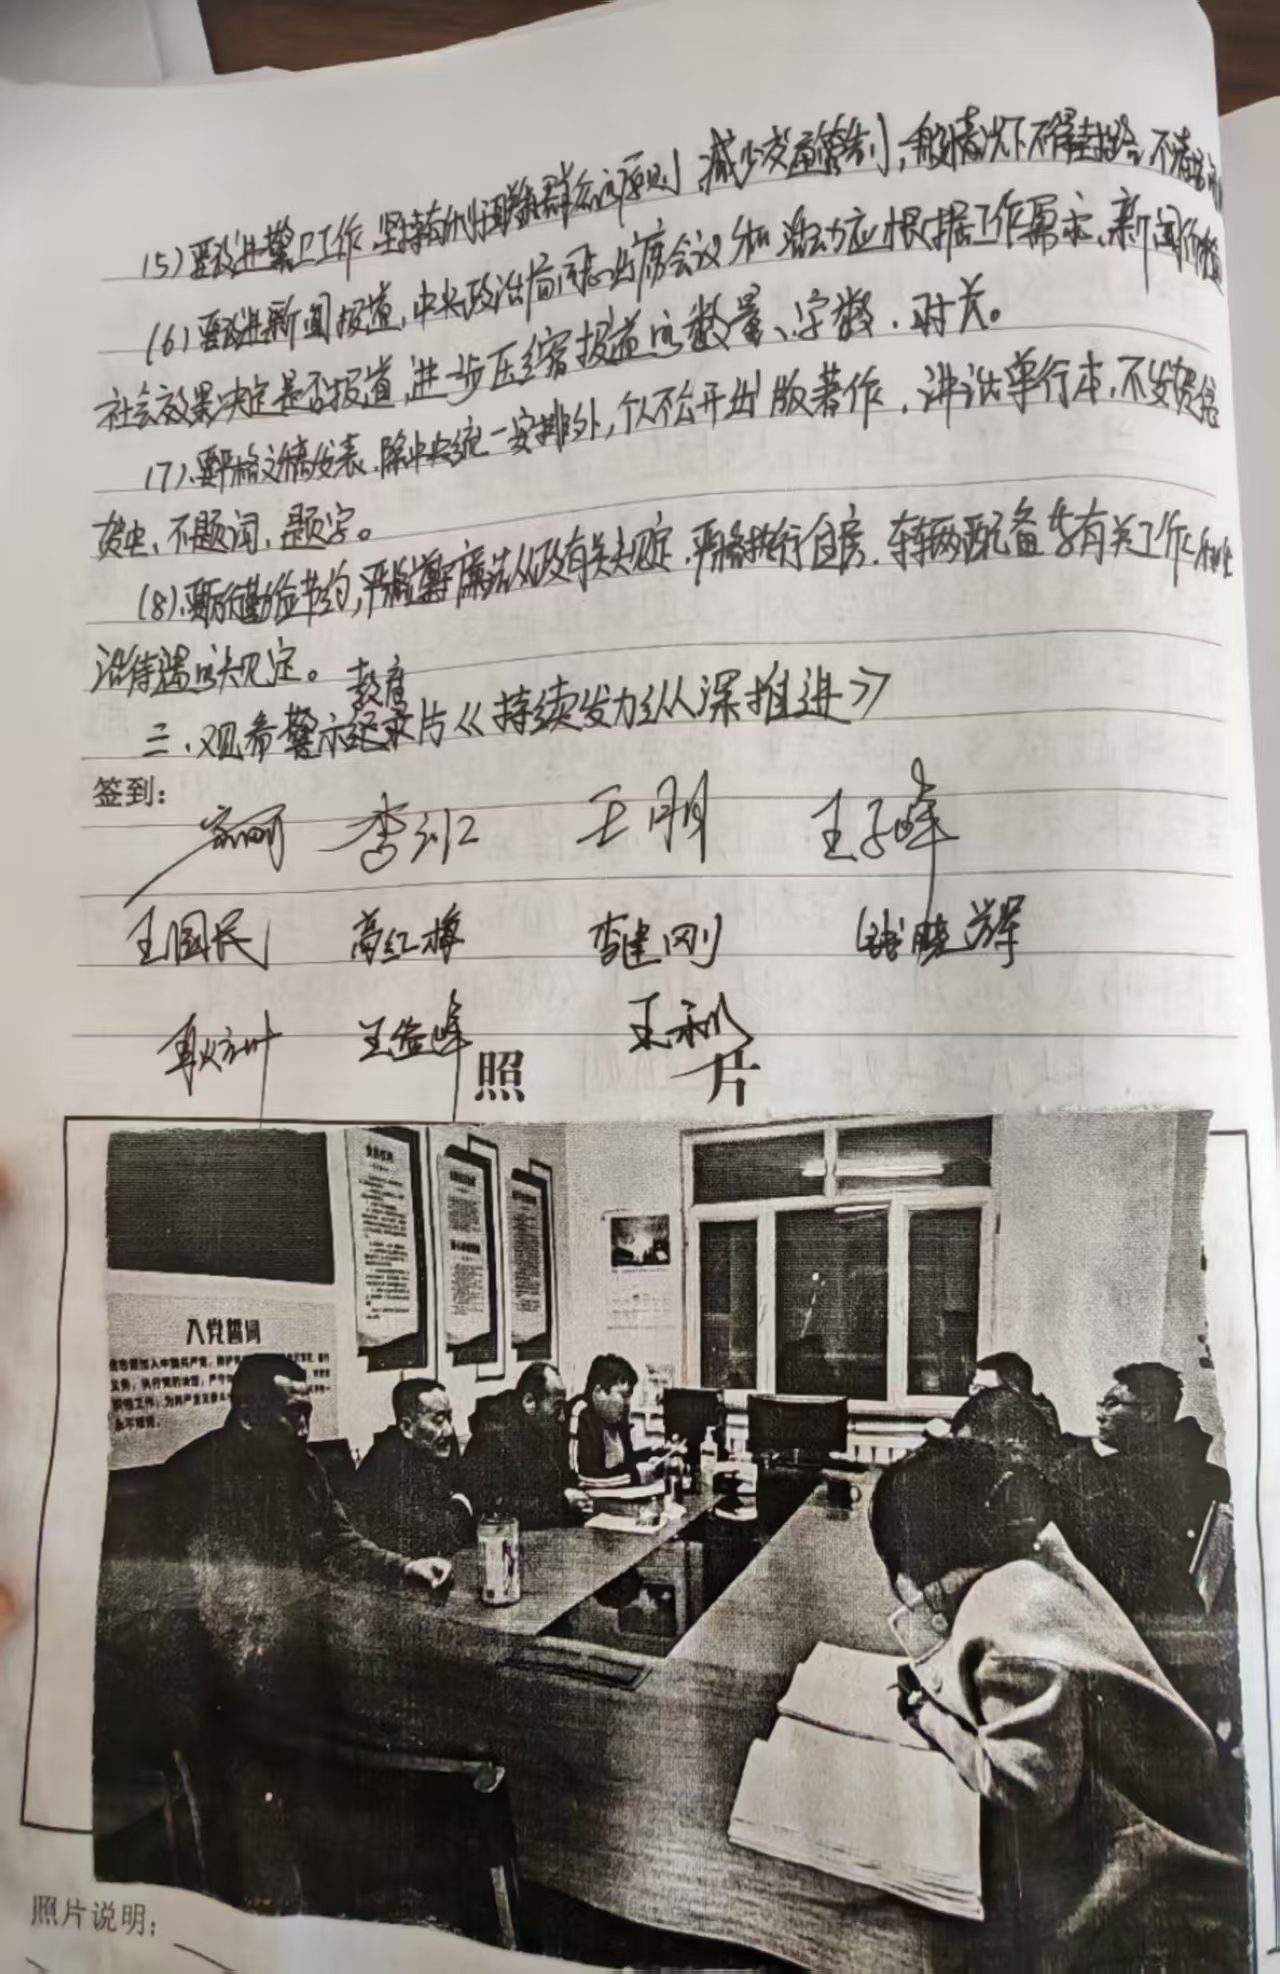 (5)要改进警卫工作,坚持有利于联系群众的原则,减少交通管制,一般情况下不得封路、不清场
(6)要改进新闻报道,中央政治局同志出席会议和活动应根据工作需求、新闻价值
社会效果决定是否报道,进一步压缩报道的数量、字数、时长。
(7)、要严格文稿发表,除中央统一安排外,个人不公开出版著作、讲话单行本,不发贺信
贺电,不题词、题字。
(8)、要厉行勤俭节约,严格遵守廉洁从政有关规定,严格执行住房、车辆配备等有关工作和生
活待遇的规定。
三、观看警示教育纪录片《持续发力纵深推进》
签到:
王明 王子峰
王国民 高红梅 李建刚
王益峰
照 片
入党誓词
照片说明: